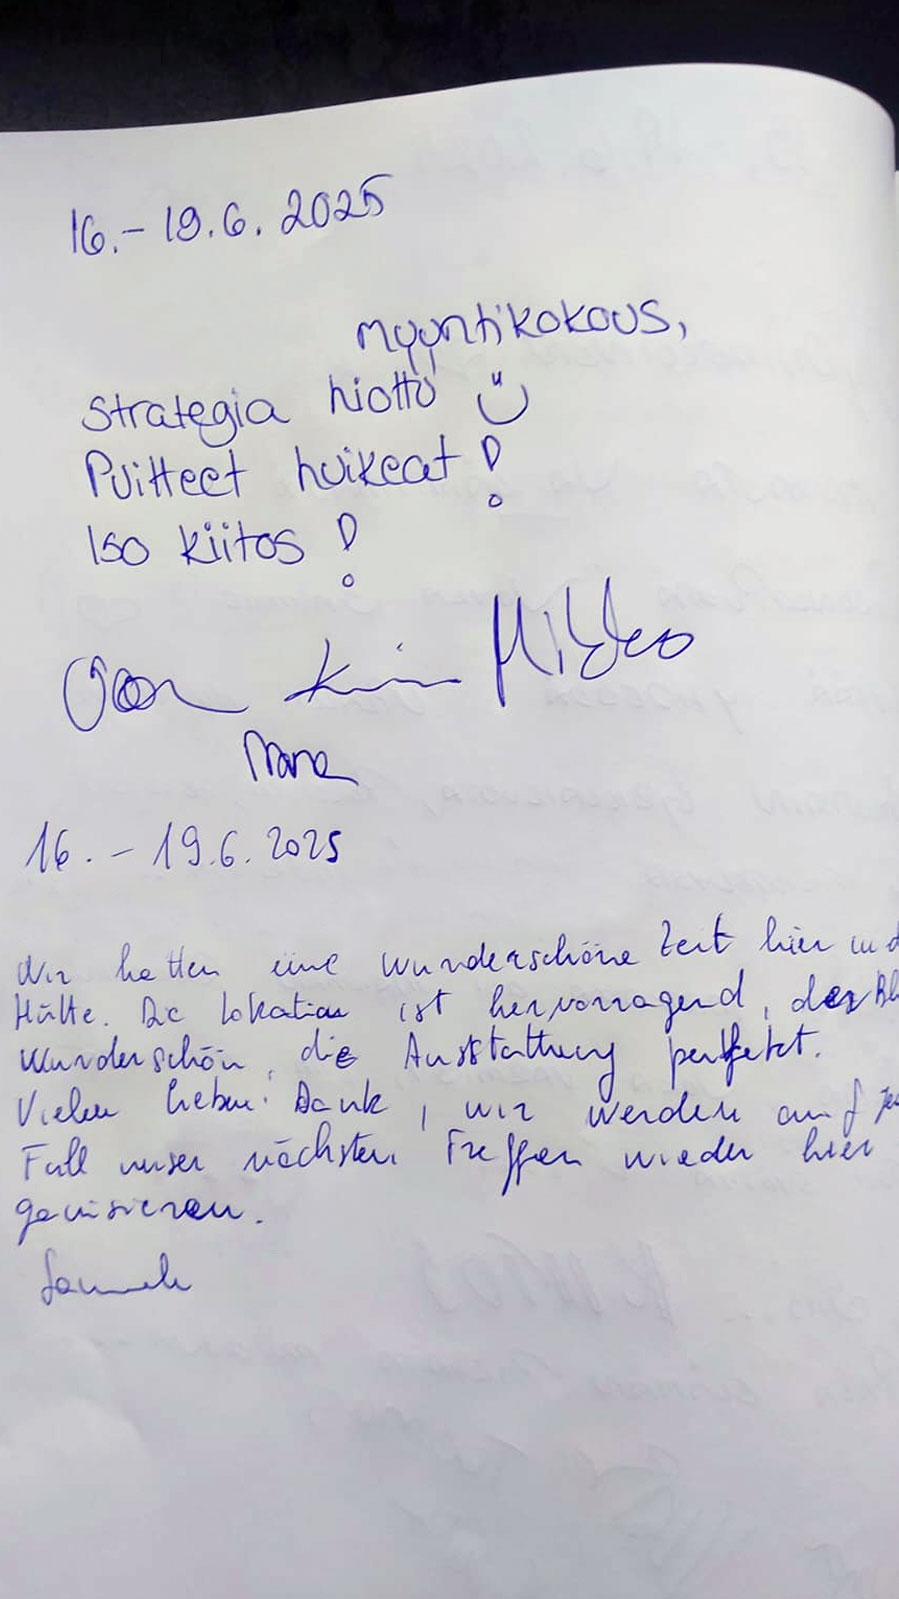 16.- 19.6. 2025
Myyntikokous,
Strategia hiottu
Puitteet huikeat!
Iso kiitos!
Mikko
Nana
16. - 19.6. 2025
Wir hatten eine wunderschöne Zeit hier in d
Hütte. Die Lokation ist hervorragend, der Bl
wunderschön, die Ausstattung perfekt.
Vielen lieben Dank, wir werden auf je
Fall unser nächsten Treffen wieder hier
ganisieren.